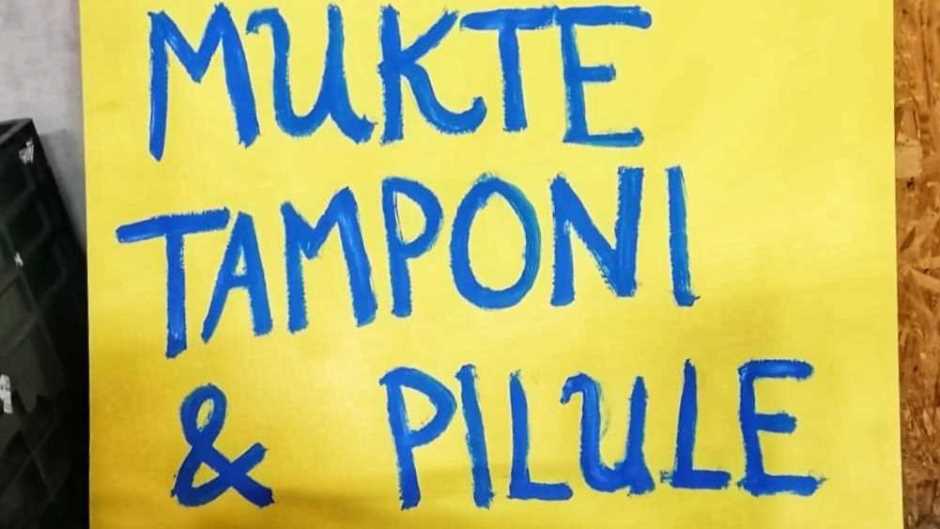 MUKTE
TAMPONI
& PILULE